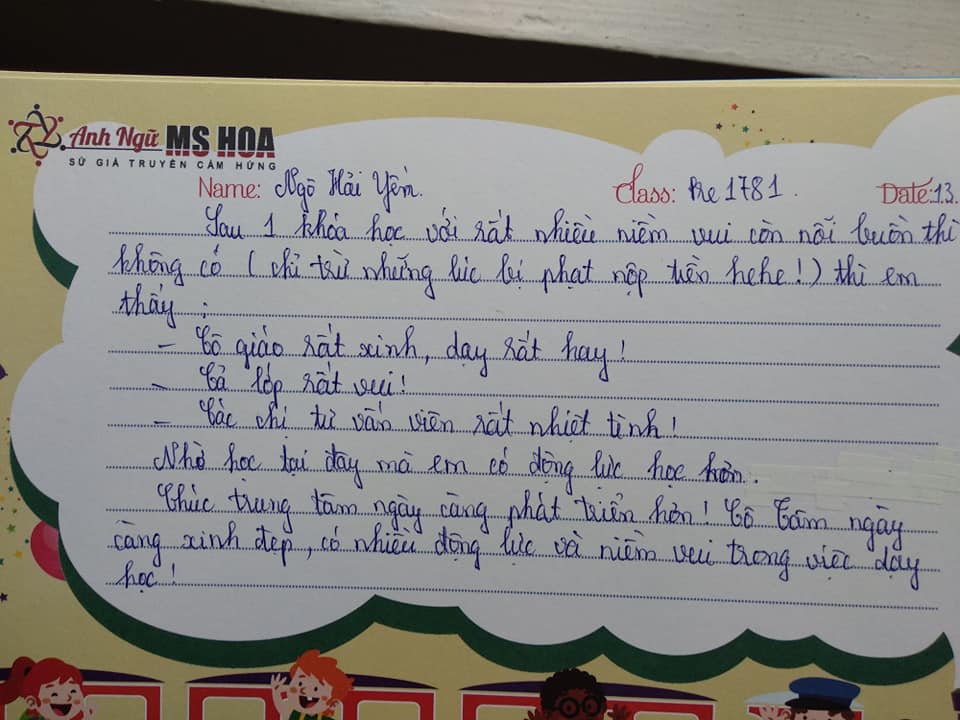 Anh Ngữ MS HOA
SỨ GIẢ TRUYỀN CẢM HỨNG
Name: Ngô Hải Yến. Class: Pre 1781. Date: 13.
Sau 1 khóa học với rất nhiều niềm vui còn nỗi buồn thì
không có (chỉ trừ những lúc bị phạt nộp tiền hehe!) thì em
thấy:
- Cô giáo rất xinh, dạy rất hay!
- Cả lớp rất vui!
- Các chị tư vấn viên rất nhiệt tình!
Nhờ học tại đây mà em có động lực học hơn.
Chúc trung tâm ngày càng phát triển hơn! Cô Tâm ngày
càng xinh đẹp, có nhiều động lực và niềm vui trong việc dạy
học!